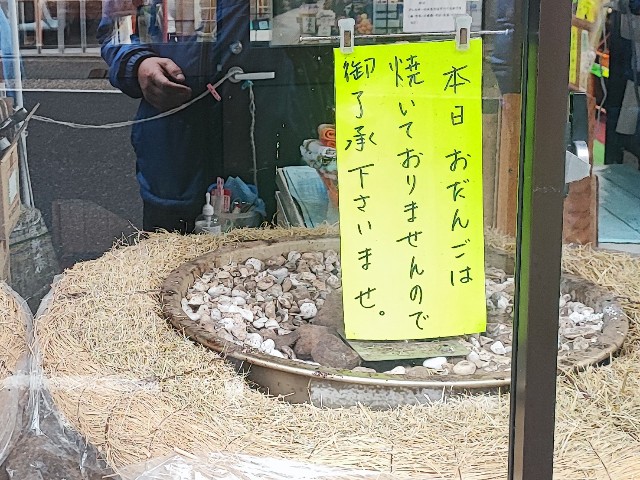 本日 おだんごは
焼いておりませんので
御了承下さいませ。